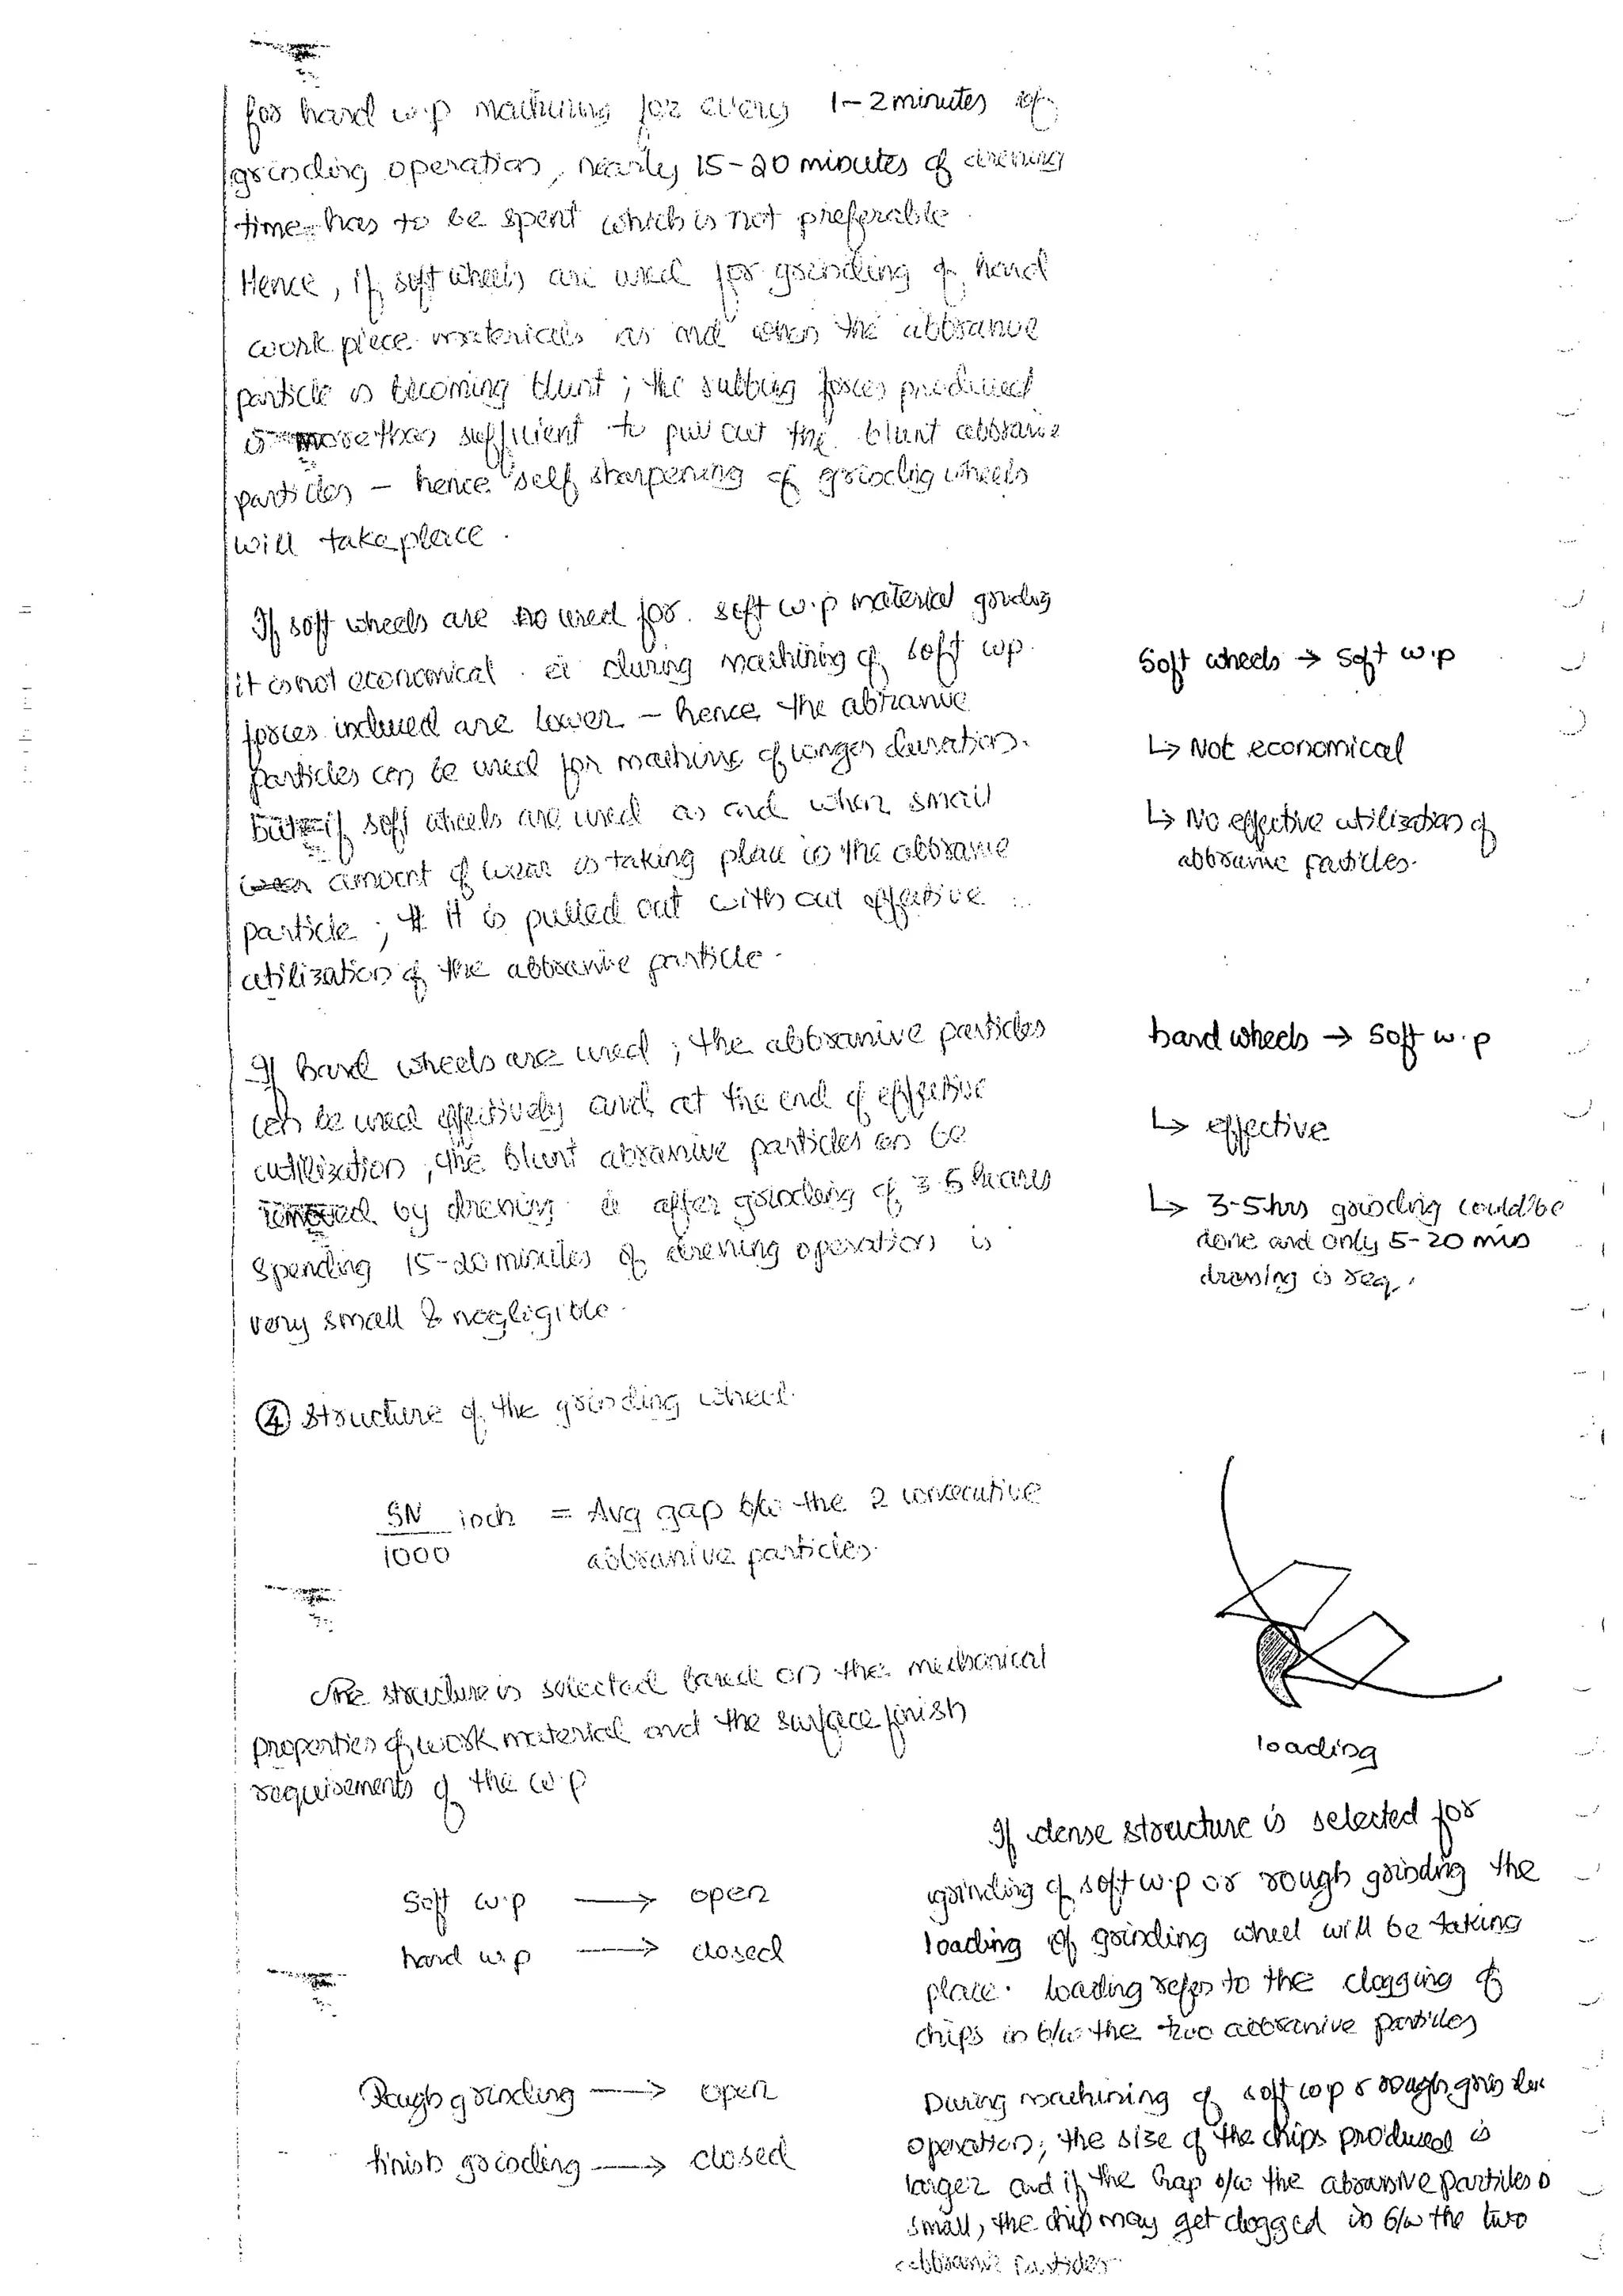 for hard w.p machining for every 1-2 minutes of
grinding operation, nearly 15-20 minutes of dressing
time has to be spent which is not preferable.
Hence, if soft wheels are used for grinding of hard
work piece materials as and when the abbrasive
particle is becoming blunt ; the rubbing forces produced
is more than sufficient to pull out the blunt abbrasive
particles - hence "self sharpening of grinding wheels
will take place.
If soft wheels are used for soft w.p material grinding
it is not economical. ie during machining of soft wp
forces induced are lower - hence the abrasive
particles can be used for machining of longer duration.
but if soft wheels are used as and when small
amount of wear is taking place in the abbrasive
particle ; it is pulled out with out effective
utilization of the abbrasive particle.
Soft wheels → Soft w.p
↳ Not economical
↳ No effective utilization of
abbrasive particles.
If hard wheels are used ; the abbrasive particles
can be used effectively and at the end of effective
utilization, the blunt abrasive particles can be
removed by dressing ie after grinding of 3-5 hours
spending 15-20 minutes of dressing operation is
very small & negligible.
hard wheels → Soft w.p
↳ effective
↳ 3-5hrs grinding could be
done and only 5-20 min
dressing is req.
④ Structure of the grinding wheel.
SN/1000 inch = Avg gap b/w the 2 consecutive
abbrasive particles.
The structure is selected based on the mechanical
properties of work material and the surface finish
requirements of the w.p
loading
Soft w.p → open
hard w.p → closed
Rough grinding → open
finish grinding → closed
If dense structure is selected for
grinding of soft w.p or rough grinding the
loading of grinding wheel will be taking
place. loading refers to the clogging of
chips in b/w the two abbrasive particles
During machining of soft wp & rough grinding
operation, the size of the chips produced is
larger and if the gap b/w the abrassive particles is
small, the chip may get clogged in b/w the two
abbrasive particles